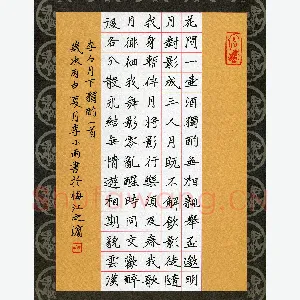 花間一壺酒獨酌無相親舉盃邀明
月對影成三人月既不解飲影徒隨
我身暫伴月將影行樂須及春我歌
月徘徊我舞影零亂醒時同交歡醉
後各分散永結無情遊相期邈雲漢
李白月下獨酌一首
歲次丙申夏月李小雨書於梅江之濱